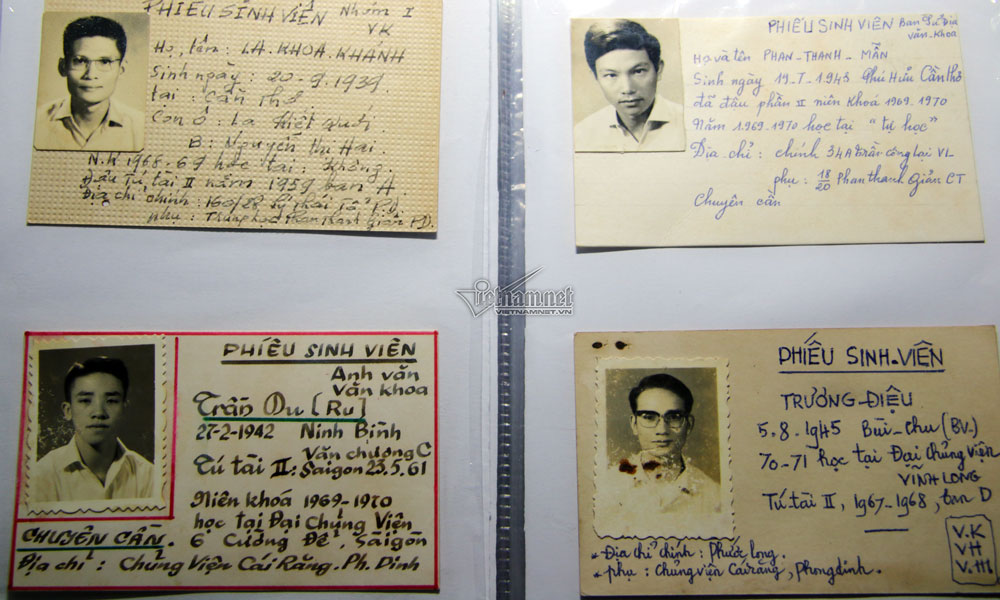 PHIẾU SINH VIÊN Nhóm I
VK
Họ, tên: LA-KHOA-KHÁNH
Sinh ngày: 20-9-1939
tại: Cần Thơ.
Con ô: La Kiết Quới
B: Nguyễn Thị Hai.
N.K 1968-69 học tại: không.
Đậu Tú tài II năm 1959 ban A
Địa chỉ chính: 160/28
phụ: Trung học Phan Thanh Giản P.D.
PHIẾU SINH VIÊN Ban Sử Địa
Văn-Khoa
Họ và tên PHAN-THANH-MẪN
Sinh ngày 19-I-1945 Phú Hữu Cần Thơ
đã đậu phần II niên khoá 1969-1970
Năm 1969-1970 học tại "tự học"
Địa chỉ: chính 34A Trần Công Lại VL
phụ: 18/20 Phan Thanh Giản CT
Chuyên cần
Vietnam.net
VIETNAMNET.VN
PHIẾU SINH VIÊN
Anh văn
Văn khoa
Trần Du [Ru]
27-2-1942 Ninh Bình
Văn chương C
Tú tài II: Saigon 23.5.61
Niên khoá 1969-1970
học tại Đại Chủng Viện
6 Cường Để, Saigon
CHUYÊN CẦN.
Địa chỉ: Chủng Viện Cái Răng. Ph. Dinh
PHIẾU SINH-VIÊN
TRƯƠNG-ĐIỆU
5.8.1945 Bùi-Chu (BV.)
70-71 học tại Đại Chủng Viện
VĨNH LONG
Tú tài II, 1967-1968, ban D
V.K
VH
V.M
* Địa chỉ chính: Phước Long.
* phụ: Chủng viện Cái răng, Phong dinh.